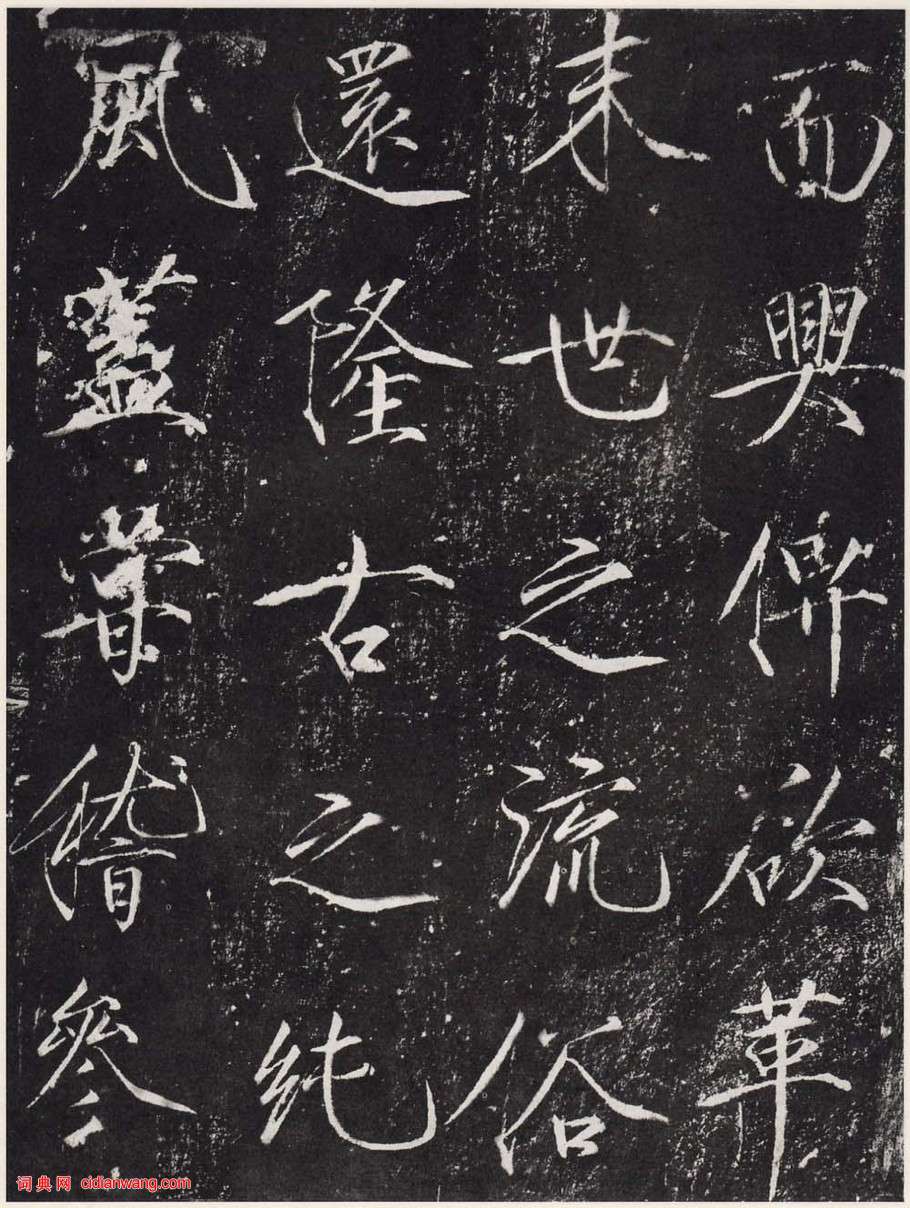 而興俾欲革
末世之流俗
還隆古之純
風蓋嘗稽參
词典网 cidianwang.com